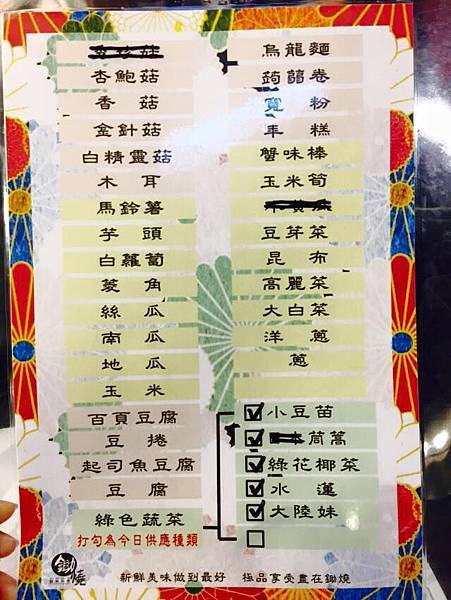 杏鮑菇
香菇
金針菇
白精靈菇
木耳
馬鈴薯
芋頭
白蘿蔔
菱角
絲瓜
南瓜
地瓜
玉米
百頁豆腐
豆捲
起司魚豆腐
豆腐
綠色蔬菜
打勾為今日供應種類
烏龍麵
蒟蒻卷
寬粉
年糕
蟹味棒
玉米筍
豆芽菜
昆布
高麗菜
大白菜
洋蔥
蔥
小豆苗
茼蒿
綠花椰菜
水蓮
大陸妹
鋤燒
新鮮美味做到最好 極品享受盡在鋤燒